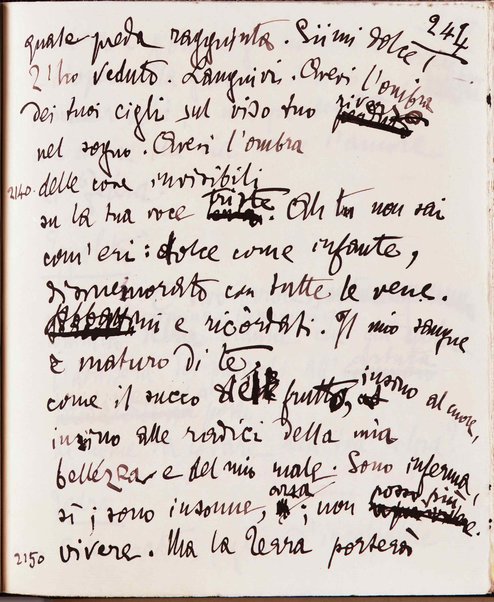 241
quale preda raggiunta. Siimi dolce!
T'ho veduto. Languivi. Avevi l'ombra
dei tuoi cigli sul viso tuo river so
nel sogno. Avevi l'ombra
2140. delle cose invisibili
su la tua voce triste. Ah tu non sai
com'eri: dolce come infante,
dismemorato con tutte le vene.
mi e ricòrdati. Il mio sangue
è maturo di te,
come il succo del frutto, insino al cuore,
insino alle radici della mia
bellezza e del mio male. Sono inferma,
sì; sono insonne, arsa; non posso più
2150 vivere. Ma la Terra porterà